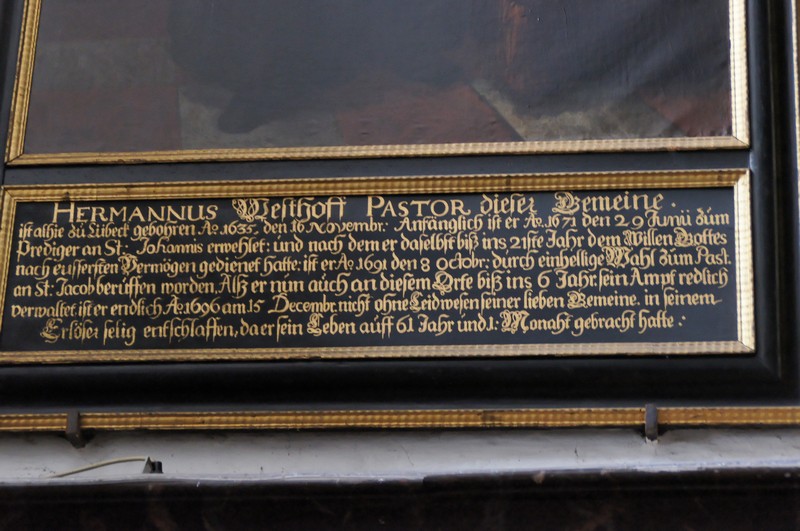 HERMANNUS Westhoff PASTOR dieser Gemeine.
ist alhie zu Lübeck gebohren. Ao. 1635. den 16 Novembr: Anfänglich ist er Ao. 1671 den 29 Junii zum
Prediger an St: Johannis erwehlet: und nach dem er daselbst biß ins 21ste Jahr dem Willen Gottes
nach eussersten Vermögen gedienet hatte: ist er Ao. 1691 den 8 Octobr: durch einhellige Wahl zum Past.
an St: Jacob beruffen worden. Alß er nun auch an diesem Orte biß ins 6 Jahr. sein Ampt redlich
verwaltet ist er endlich Ao. 1696 am. 15 Decembr. nicht ohne Leidwesen seiner lieben Gemeine. in seinem
Erlöser selig entschlaffen, da er sein Leben auff 61 Jahr und .1. Monaht gebracht hatte: